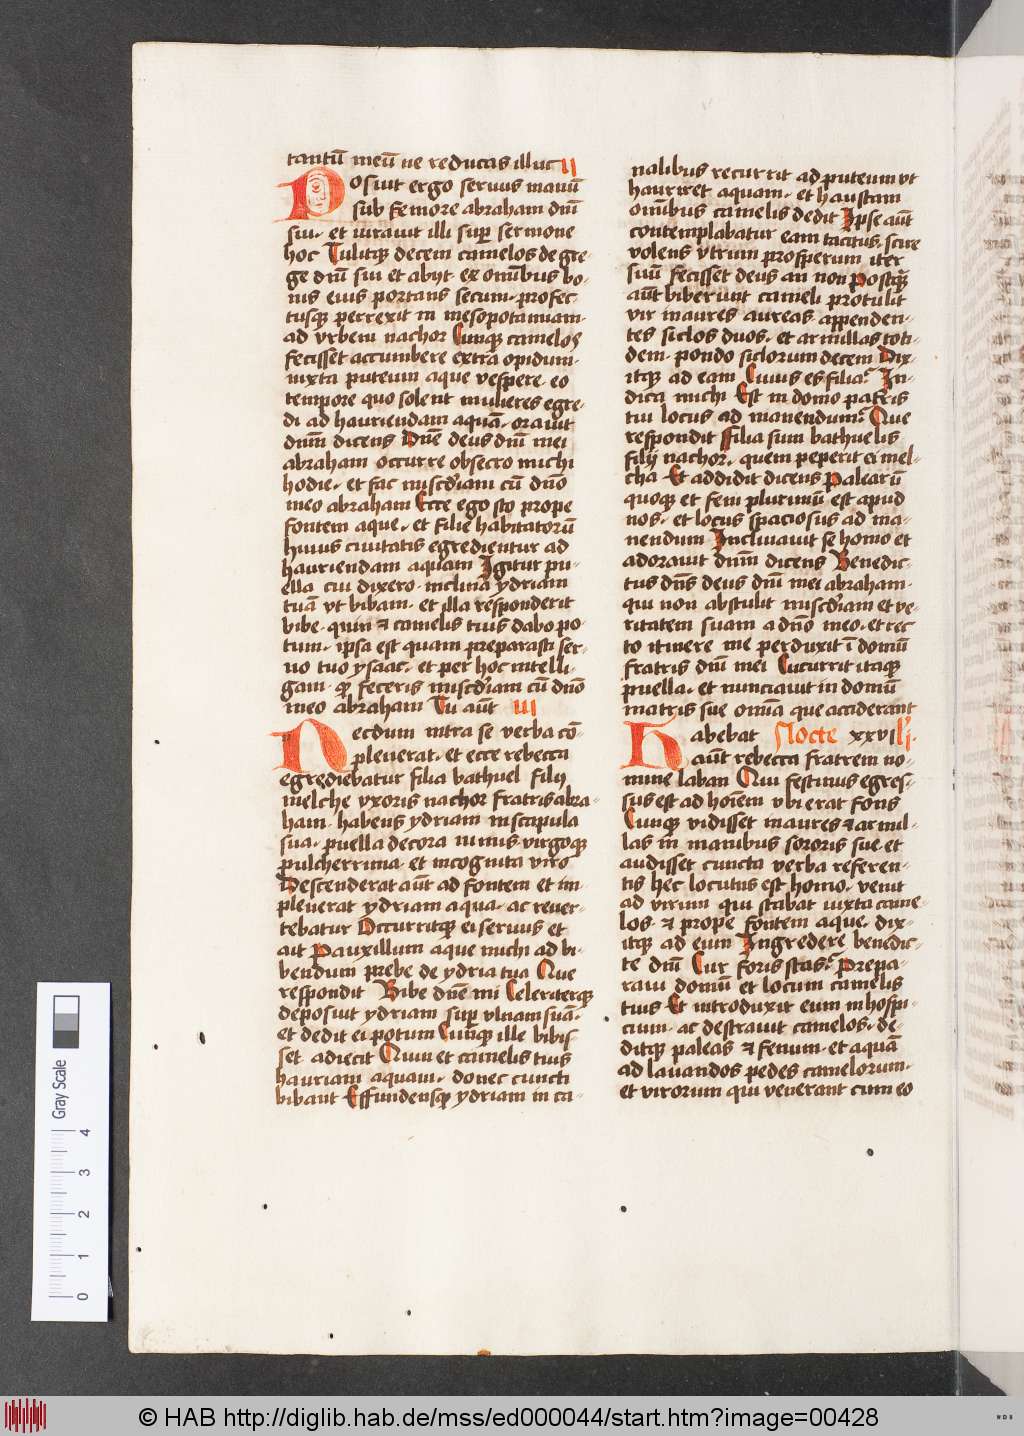 tantū meū ne reducas illuc II
Posuit ergo servus manū
sub femore abraham dnī
sui· et iuravit illi sup sermone
hoc Tulitqꝫ decem camelos de gre-
ge dnī sui et abijt· ex omībus bo-
nis eius portans secum· profec
tusqꝫ perrexit in mesopotamiam·
ad vrbem nachor Cunqꝫ camelos
fecisset accumbere extra opidum·
iuxta puteum aque vespere· eo
tempore quo solent mulieres egre-
di ad hauriendam aquā· oravit
dnm̄ dicens Dnē deus dnī mei
abraham occurre obsecro michi
hodie· et fac miscdiam cū dn̄o
meo abraham Ecce ego sto prope
fontem aque· et filie habitatorū
huius civitatis egredientur ad
hauriendam aquam Igitur pu-
ella cui dixero· inclina ydriam
tuā vt bibam· et illa responderit
bibe· quin ⁊ camelis tuis dabo po-
tum· ipsa est quam preparasti ser-
vo tuo ysaac· et per hoc intelli-
gam· qꝫ feceris miscdiam cū dn̄o
meo abraham Tu aūt III
Necdum intra se verba cō-
pleverat· et ecce rebecca
egrediebatur filia bathuel filij
melche vxoris nachor fratris abra-
ham· habens ydriam in scapula
sua· puella decora nimis· virgoqꝫ
pulcherrima· et incognita viro
Descenderat aūt ad fontem et im-
pleverat ydriam aqua· ac rever-
tebatur Occurritqꝫ ei servus et
ait Pauxillum aque michi ad bi-
bendum prebe de ydria tua Que
respondit Bibe dnē mi Celeriterqꝫ
deposuit ydriam sup vlnam suā·
et dedit ei potum Cumqꝫ ille bibis
set adiecit Quin et camelis tuis
hauriam aquam· donec cuncti
bibant Effundensqꝫ ydriam in ca-
nalibus recurrit ad puteum vt
hauriret aquam· et haustam
omībus camelis dedit Ipse aūt
contemplabatur eam tacitus· scire
volens vtrum prosperum iter
suū fecisset deus an non Postqꝫ
aūt biberunt cameli protulit
vir inaures aureas· appenden-
tes siclos duos· et armillas toti-
dem· pondo siclorum decem Dix-
itqꝫ ad eam Cuius es filia? In-
dica michi Est in domo patris
tui locus ad manendum? Que
respondit ffilia sum bathuelis
filij nachor· quem peperit ei mel-
cha Et addidit dicens Palearū
quoqꝫ et feni plurimū est apud
nos· et locus spaciosus ad ma-
nendum Inclinavit se homo et
adoravit dnm̄ dicens Benedic-
tus dn̄s deus dnī mei abraham·
qui non abstulit miscdiam et ve-
ritatem suam a dn̄o meo· et rec
to itinere me perduxit ī domū
fratris dnī mei Cucurrit itaqꝫ
puella· et nunciavit in domū
matris sue omīa que acciderant
Habebat Nocte xxvi li·
aūt rebecca fratrem no-
mine laban Qui festinus egres-
sus est ad hoīem vbi erat fons
Cunqꝫ vidisset inaures ⁊ armil-
las in manibus sororis sue· et
audisset cuncta verba referen-
tis hec locutus est homo· venit
ad virum qui stabat iuxta came-
los· ⁊ prope fontem aque· dix-
itqꝫ ad eum Ingredere benedic-
te dnī Cur foris stas? Prepa-
ravi domū et locum camelis
tuis Et introduxit eum in hospi-
cium· ac destravit camelos· de-
ditqꝫ paleas ⁊ fenum· et aquā
ad lavandos pedes camelorum·
et virorum qui venerant cum eo
Gray Scale
0 1 2 3 4
© HAB http://diglib.hab.de/mss/ed000044/start.htm?image=00428